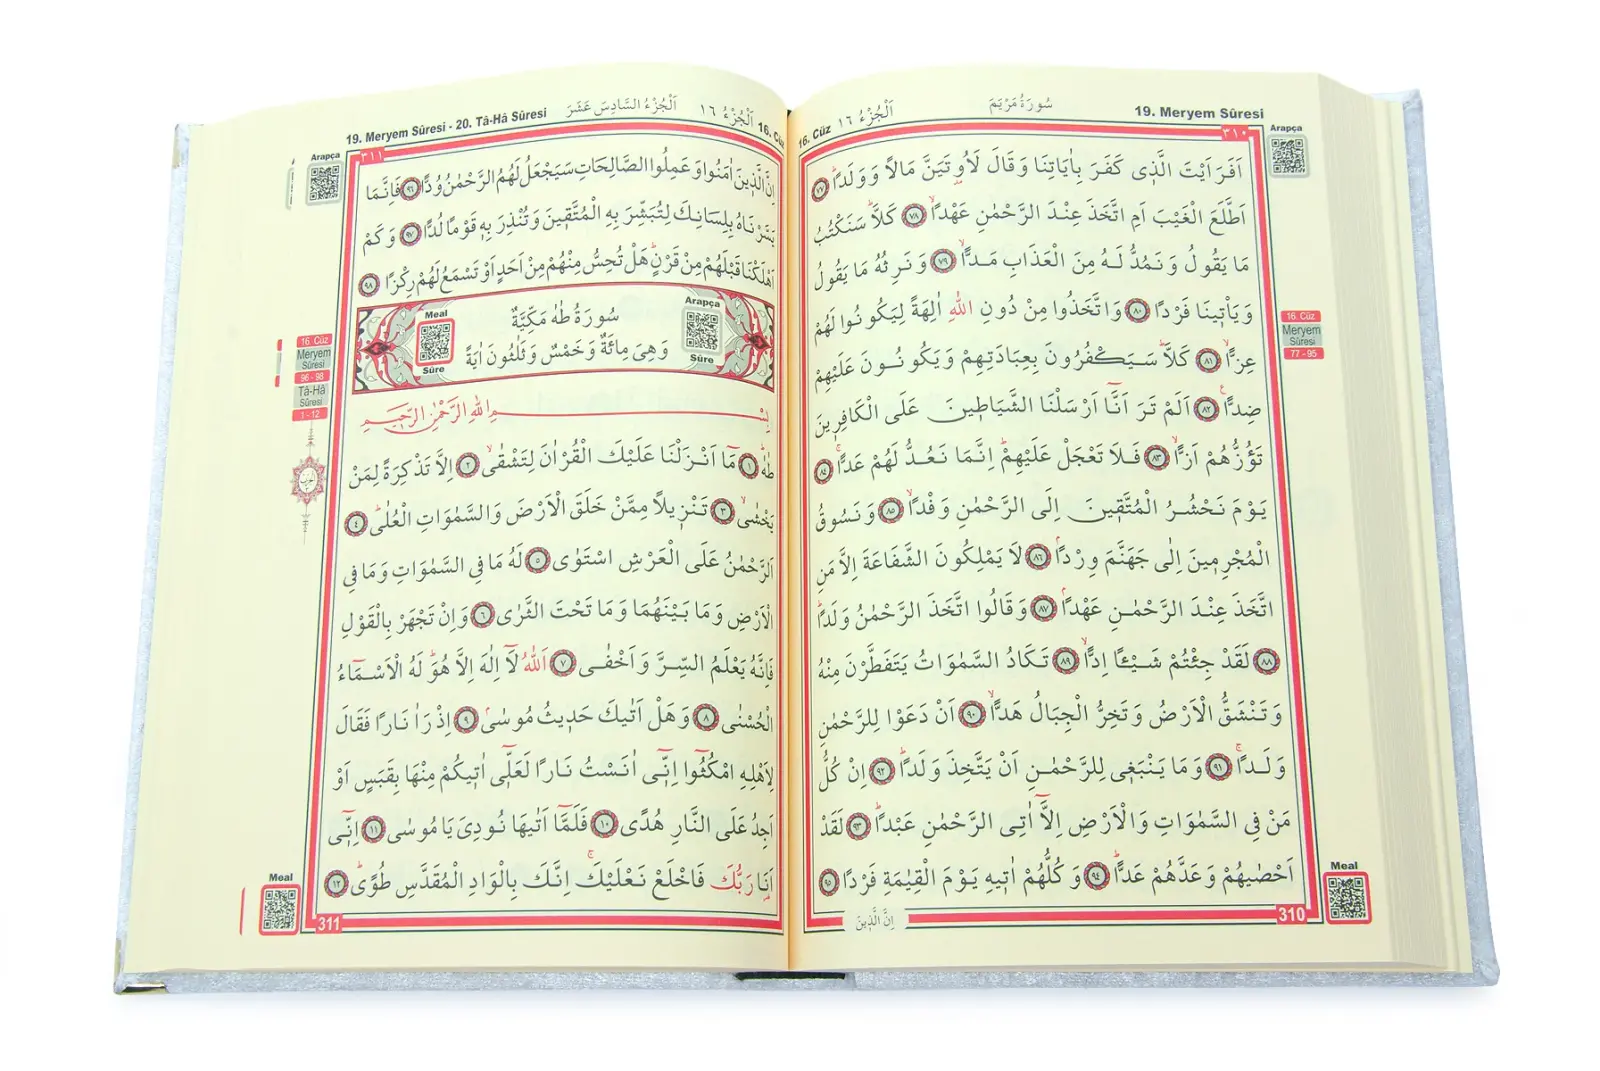 19. Meryem Sûresi
سُورَةُ مَرْيَمَ
اَلْجُزْءُ ١٦
16. Cüz
٣١٠
Arapça
اَفَرَاَيْتَ الَّذ۪ي كَفَرَ بِاٰيَاتِنَا وَقَالَ لَاُو۫تَيَنَّ مَالًا وَوَلَدًاۜ ﴿٧٧﴾
اَطَّلَعَ الْغَيْبَ اَمِ اتَّخَذَ عِنْدَ الرَّحْمٰنِ عَهْدًاۙ ﴿٧٨﴾ كَلَّاۜ سَنَكْتُبُ
مَا يَقُولُ وَنَمُدُّ لَهُ مِنَ الْعَذَابِ مَدًّاۙ ﴿٧٩﴾ وَنَرِثُهُ مَا يَقُولُ
وَيَأْت۪ينَا فَرْدًا ﴿٨٠﴾ وَاتَّخَذُوا مِنْ دُونِ اللّٰهِ اٰلِهَةً لِيَكُونُوا لَهُمْ
عِزًّاۙ ﴿٨١﴾ كَلَّاۜ سَيَكْفُرُونَ بِعِبَادَتِهِمْ وَيَكُونُونَ عَلَيْهِمْ
ضِدًّا۟ ﴿٨٢﴾ اَلَمْ تَرَ اَنَّٓا اَرْسَلْنَا الشَّيَاط۪ينَ عَلَى الْكَافِر۪ينَ
تَؤُزُّهُمْ اَزًّاۙ ﴿٨٣﴾ فَلَا تَعْجَلْ عَلَيْهِمْۜ اِنَّمَا نَعُدُّ لَهُمْ عَدًّاۚ ﴿٨٤﴾
يَوْمَ نَحْشُرُ الْمُتَّق۪ينَ اِلَى الرَّحْمٰنِ وَفْدًاۙ ﴿٨٥﴾ وَنَسُوقُ
الْمُجْرِم۪ينَ اِلٰى جَهَنَّمَ وِرْدًاۢ ﴿٨٦﴾ لَا يَمْلِكُونَ الشَّفَاعَةَ اِلَّا مَنِ
اتَّخَذَ عِنْدَ الرَّحْمٰنِ عَهْدًاۢ ﴿٨٧﴾ وَقَالُوا اتَّخَذَ الرَّحْمٰنُ وَلَدًاۜ
﴿٨٨﴾ لَقَدْ جِئْتُمْ شَيْـًٔا اِدًّاۙ ﴿٨٩﴾ تَكَادُ السَّمٰوَاتُ يَتَفَطَّرْنَ مِنْهُ
وَتَنْشَقُّ الْاَرْضُ وَتَخِرُّ الْجِبَالُ هَدًّاۙ ﴿٩٠﴾ اَنْ دَعَوْا لِلرَّحْمٰنِ
وَلَدًاۚ ﴿٩١﴾ وَمَا يَنْبَغ۪ي لِلرَّحْمٰنِ اَنْ يَتَّخِذَ وَلَدًاۜ ﴿٩٢﴾ اِنْ كُلُّ
مَنْ فِي السَّمٰوَاتِ وَالْاَرْضِ اِلَّٓا اٰتِي الرَّحْمٰنِ عَبْدًاۜ ﴿٩٣﴾ لَقَدْ
اَحْصٰيهُمْ وَعَدَّهُمْ عَدًّاۜ ﴿٩٤﴾ وَكُلُّهُمْ اٰت۪يهِ يَوْمَ الْقِيٰمَةِ فَرْدًا ﴿٩٥﴾
اِنَّ الَّذ۪ينَ
310
16. Cüz
Meryem
Sûresi
77 - 95
Meal
16. Cüz
اَلْجُزْءُ ١٦
اَلْجُزْءُ السَّادِسَ عَشَرَ
19. Meryem Sûresi - 20. Tâ-Hâ Sûresi
٣١١
Arapça
اِنَّ الَّذ۪ينَ اٰمَنُوا وَعَمِلُوا الصَّالِحَاتِ سَيَجْعَلُ لَهُمُ الرَّحْمٰنُ وُدًّا ﴿٩٦﴾ فَاِنَّمَا
يَسَّرْنَاهُ بِلِسَانِكَ لِتُبَشِّرَ بِهِ الْمُتَّق۪ينَ وَتُنْذِرَ بِه۪ قَوْمًا لُدًّا ﴿٩٧﴾ وَكَمْ
اَهْلَكْنَا قَبْلَهُمْ مِنْ قَرْنٍۜ هَلْ تُحِسُّ مِنْهُمْ مِنْ اَحَدٍ اَوْ تَسْمَعُ لَهُمْ رِكْزًا ﴿٩٨﴾
Arapça
Sûre
سُورَةُ طٰهٰ مَكِّيَّةٌ
وَهِيَ مِائَةٌ وَخَمْسٌ وَثَلٰثُونَ اٰيَةً
Meal
Sûre
بِسْمِ اللّٰهِ الرَّحْمٰنِ الرَّح۪يمِ
طٰهٰ ﴿١﴾ مَٓا اَنْزَلْنَا عَلَيْكَ الْقُرْاٰنَ لِتَشْقٰىۙ ﴿٢﴾ اِلَّا تَذْكِرَةً لِمَنْ
يَخْشٰىۙ ﴿٣﴾ تَنْز۪يلًا مِمَّنْ خَلَقَ الْاَرْضَ وَالسَّمٰوَاتِ الْعُلٰىۜ ﴿٤﴾
اَلرَّحْمٰنُ عَلَى الْعَرْشِ اسْتَوٰى ﴿٥﴾ لَهُ مَا فِي السَّمٰوَاتِ وَمَا فِي
الْاَرْضِ وَمَا بَيْنَهُمَا وَمَا تَحْتَ الثَّرٰى ﴿٦﴾ وَاِنْ تَجْهَرْ بِالْقَوْلِ
فَاِنَّهُ يَعْلَمُ السِّرَّ وَاَخْفٰى ﴿٧﴾ اَللّٰهُ لَٓا اِلٰهَ اِلَّا هُوَۜ لَهُ الْاَسْمَٓاءُ
الْحُسْنٰى ﴿٨﴾ وَهَلْ اَتٰيكَ حَد۪يثُ مُوسٰىۢ ﴿٩﴾ اِذْ رَاٰ نَارًا فَقَالَ
لِاَهْلِهِ امْكُثُٓوا اِنّ۪ٓي اٰنَسْتُ نَارًا لَعَلّ۪ٓي اٰت۪يكُمْ مِنْهَا بِقَبَسٍ اَوْ
اَجِدُ عَلَى النَّارِ هُدًى ﴿١٠﴾ فَلَمَّٓا اَتٰيهَا نُودِيَ يَا مُوسٰى ﴿١١﴾ اِنّ۪ٓي
اَنَا۬ رَبُّكَ فَاخْلَعْ نَعْلَيْكَۚ اِنَّكَ بِالْوَادِ الْمُقَدَّسِ طُوًىۜ ﴿١٢﴾
311
16. Cüz
Meryem
Sûresi
96 - 98
Tâ-Hâ
Sûresi
1 - 12
Meal